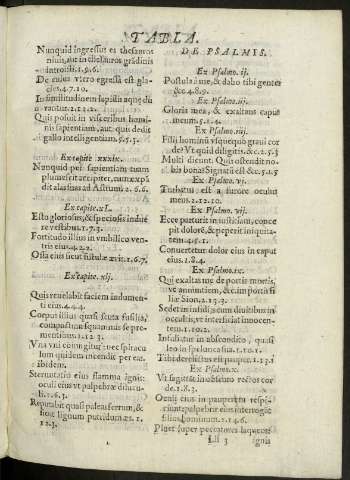 TABLA.
Nunquid ingressus es thesauros
niuis, aut in thesauros grãdinis
introisti. 1. 9. 6.
De cuius vtero egressa est gla-
cies. 4. 7. 10.
In similitudinem lapidis aquę du
rantur. 1. 2. 2.
Quis posuit in visceribus homi-
nis sapientiam, aut quis dedit
gallo intelligentiam. 5. 5. 5.
Ex capite xxxix.
Nunquid per sapientiam tuam
plumescit accipiter, nam expã
dit alas suas ad Austrum. 2. 6. 6.
Ex capite. xl.
Esto gloriosus, & speciosis indué
re vestibus. 1. 7. 3.
Fortitudo illius in vmbilico ven-
tris eius. 4. 2. 2.
Ossa eius sicut fistulæ æris. 1. 6. 7.
Ex capite. xlj.
Quis reuelabit faciem indumen-
ti eius. 4. 4. 4.
Corpus illius quasi scuta fusilia,
compactum squamis se pre-
mentibus. 1. 12. 3.
Vna vni coniungitur, nec spiracu
lum quidem incendit per eas.
ibidem.
Sternutatio eius flamma ignis:
oculi eius vt palpebræ dilucu-
li. 1. 6. 3.
Reputabit quasi paleas ferrum, &
quasi lignum putridum æs. 1.
12. 3.
DE PSALMIS.
Ex Psalmo. ij.
Postula à me, & dabo tibi gentes
&c. 4. 8. 9.
Ex Psalmo. iij.
Gloria mea, & exaltans caput
meum. 5. 1. 4.
Ex Psalmo. iiij.
Filij hominũ vsquequò graui cor
de? Vt quid diligitis. &c. 2. 5. 5
Multi dicunt. Quis ostendit no-
bis bona? Signatũ est &c. 5. 2. 5
Ex Psalmo. vj.
Turbatus est a furore oculus
meus. 2. 12. 10.
Ex Psalmo. vij.
Ecce parturit in iustitiam, conce
pit dolorẽ, & peperit iniquita-
tem. 4. 5. 1.
Conuertetur dolor eius in caput
eius. 1. 8. 4.
Ex Psalmo. ix.
Qui exaltas me de portis mortis,
vt annuntiem, &c. in portis fi
liæ Sion. 2. 1 3. 3.
Sedet in insidijs cum diuitibus in
occultis, vt interficiat innocen-
tem. 1. 10. 2.
Insidiatur in abscondito, quasi
leo in spelunca sua. 1. 10. 1.
Tibi derelictus est pauper. 1. 13. 1
Ex Psalmo. x.
Vt sagittẽt in obscuro rectos cor
de. 1. 8. 3.
Oculi eius in pauperem respi-
ciunt: palpebræ eius interrogãt
filios hominum. 2. 14. 6.
Pluet super peccatores laqueos:
Lll 3 ignis